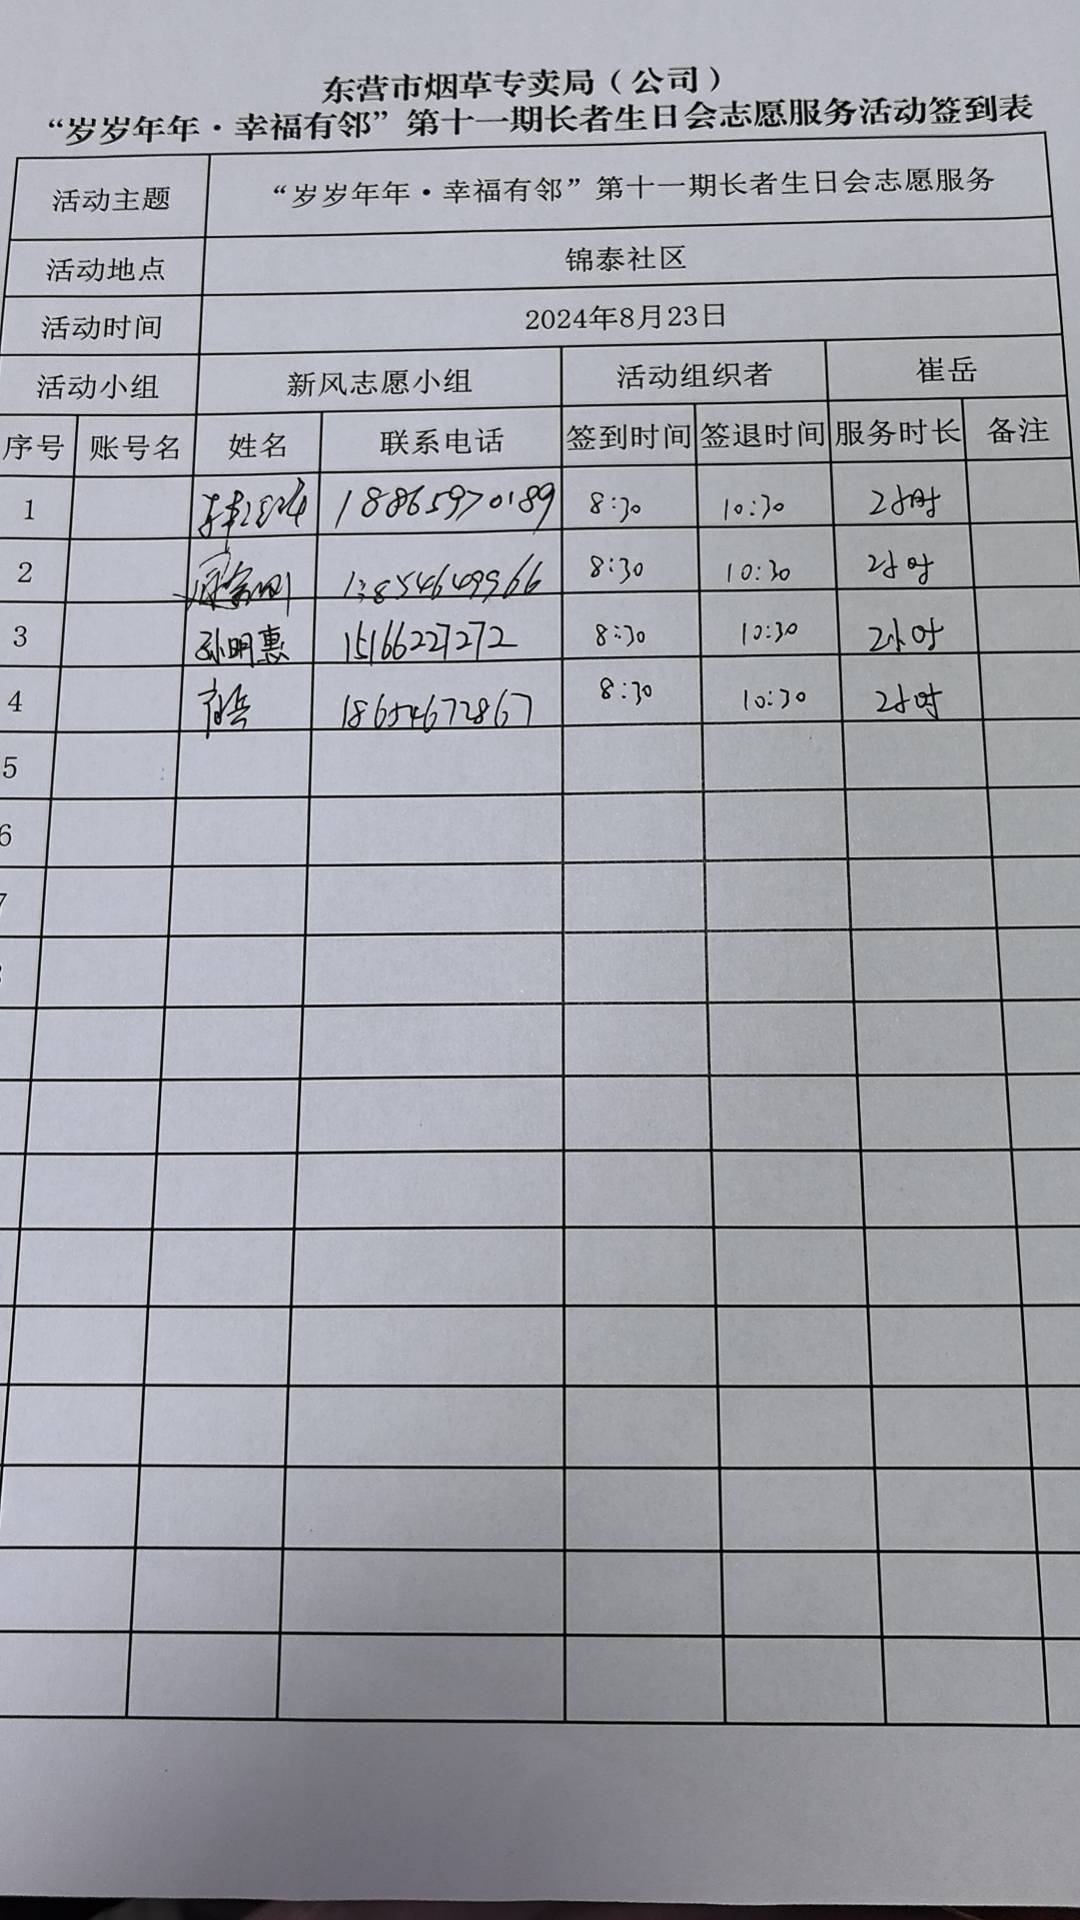 东营市烟草专卖局（公司）
“岁岁年年·幸福有邻”第十一期长者生日会志愿服务活动签到表
活动主题 “岁岁年年·幸福有邻”第十一期长者生日会志愿服务
活动地点 锦泰社区
活动时间 2024年8月23日
活动小组 新风志愿小组 活动组织者 崔岳
序号 账号名 姓名 联系电话 签到时间 签退时间 服务时长 备注
1 18865970189 8:30 10:30 2小时
2 13854649966 8:30 10:30 2小时
3 孙明惠 15166227272 8:30 10:30 2小时
4 18654672867 8:30 10:30 2小时
5
6
7